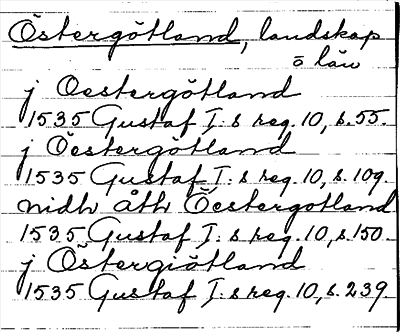 Östergötland, landskap
o län
j Oestergötland
1535 Gustaf I:s reg. 10, s. 55.
j Öestergötland
1535 Gustaf I:s reg. 10, s. 109.
nidh åth Öestergotland
1535 Gustaf I:s reg. 10, s. 150.
j Östergiötland
1535 Gustaf I:s reg. 10, s. 239.